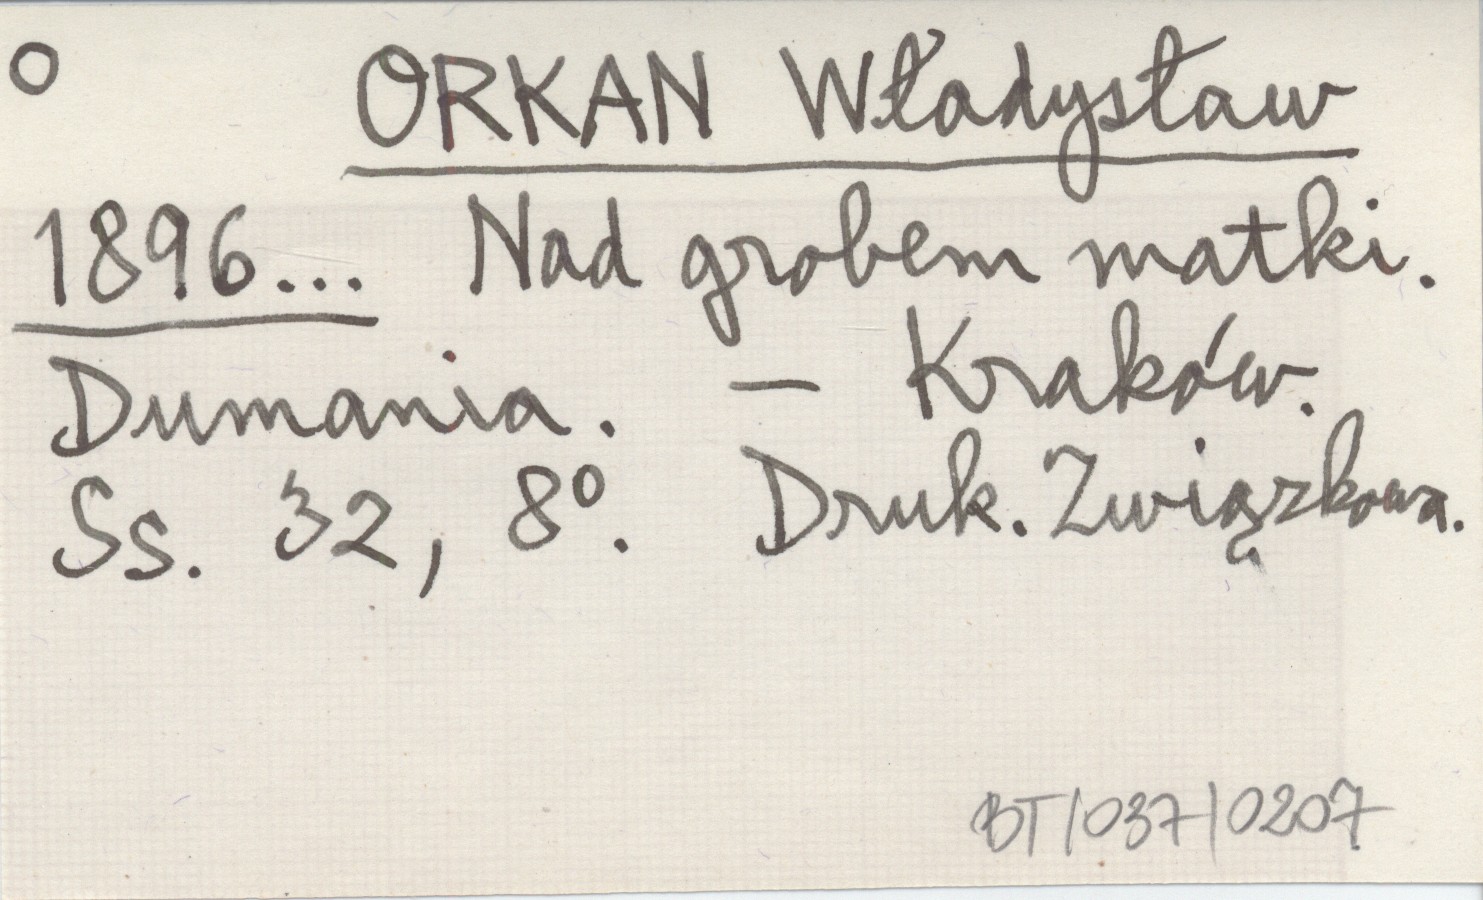 O ORKAN Władysław
1896... Nad grobem matki.
Dumania. — Kraków.
Ss. 32, 8°. Druk. Związkowa.
BT/037/0207